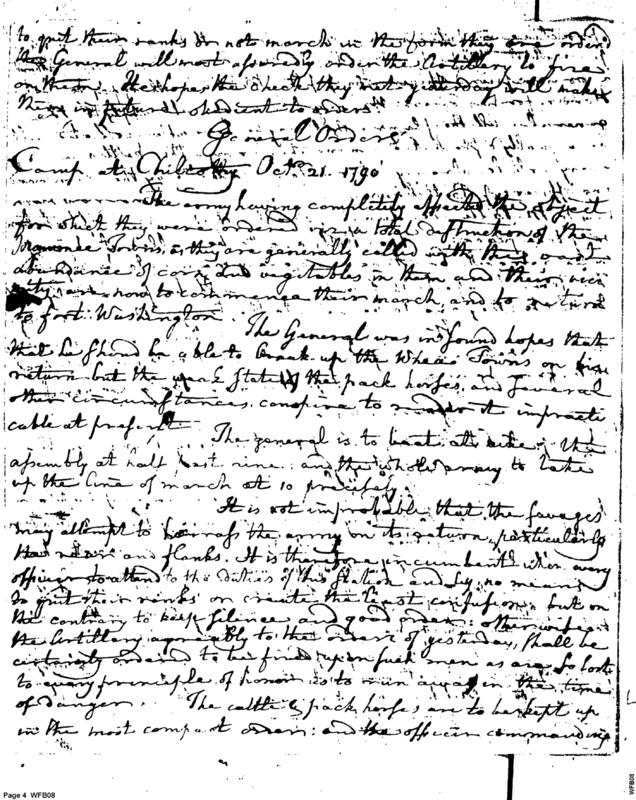 to quit their ranks or not march in the form they are ordered
the General will most assuredly order the Artillery to fire
on them. He hopes the check they met yesterday will make
them in future obedient to orders"
General Orders
Camp at Chilicothy Octr. 21. 1790
The army having completely effected the object
for which they were ordered viz a total distruction of the
Towns, as they are generally called with the vast
abundance of corn and vegetables in them and their vici
nity, are now to commence their march and to return
to fort Washington.
The General was in found hopes that
that he should be able to break up the Towns on his
return but the weak state of the pack horses, and several
other circumstances conspire to render it impracti
cable at present
The general is to beat at nine, the
assembly at half past nine: and the whole army to take
up the line of march at 10 precisely
It is not improbable that the savages
may attempt to harrass the army on its return, particularly
the rear and flanks. It is therefore incumbent on every
officer to attend to the duties of his station and by no means
to quit their ranks or create the least confusion but on
the contrary to keep silence and good order: otherwise
the Artillery agreeably to the orders of yesterday, shall be
certainly ordered to be fired upon such men as are so lost
to every principle of honor as to run away in the time
of danger. The cattle & pack horses are to be kept up
in the most compact order: and the officer commanding
Page 4 WFB08
WFB08